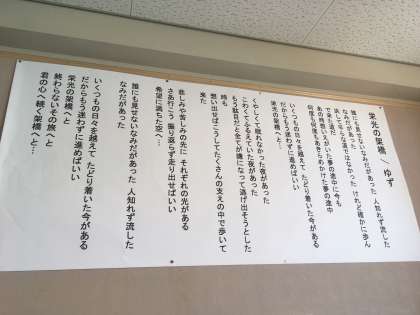 栄光の架橋 / ゆず
誰にも見せないなみだがあった 人知れず流した
なみだがあった
決して平らな道ではなかった けれど確かに歩ん
で来た道だ
あの時想いえがいた夢の途中に今も
何度も何度もあきらめかけた夢の途中
いくつもの日々を越えて たどり着いた今がある
だからもう迷わずに進めばいい
栄光の架橋へと…
くやしくて眠れなかった夜があった
こわくてふるえていた夜があった
もう駄目だと全てが嫌になって逃げ出そうとした
時も
想い出せばこうしてたくさんの支えの中で歩いて
来た
悲しみや苦しみの先に それぞれの光がある
さあ行こう 振り返らず走り出せばいい
希望に満ちた空へ…
誰にも見せないなみだがあった 人知れず流した
なみだがあった
いくつもの日々を越えて たどり着いた今がある
だからもう迷わずに進めばいい
栄光の架橋へと
終わらないその旅へと
君の心へ続く架橋へと…